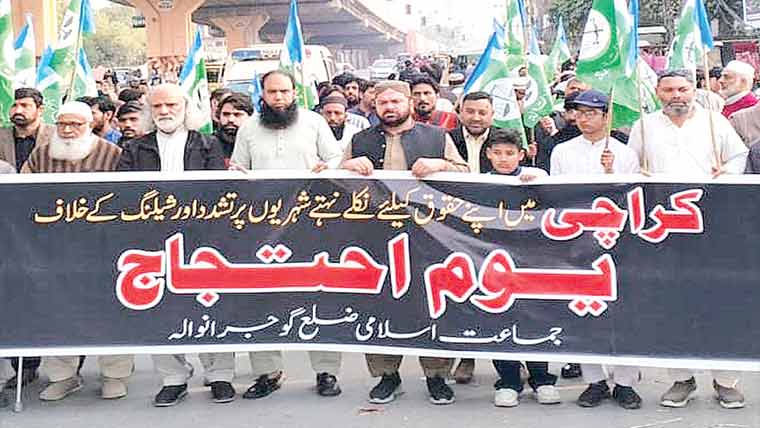 کراچی میں اپنے حقوق کیلئے نکلے نہتے شہریوں پر تشدد اور شیلنگ کے خلاف
یوم احتجاج
جماعت اسلامی ضلع گوجرانوالہ